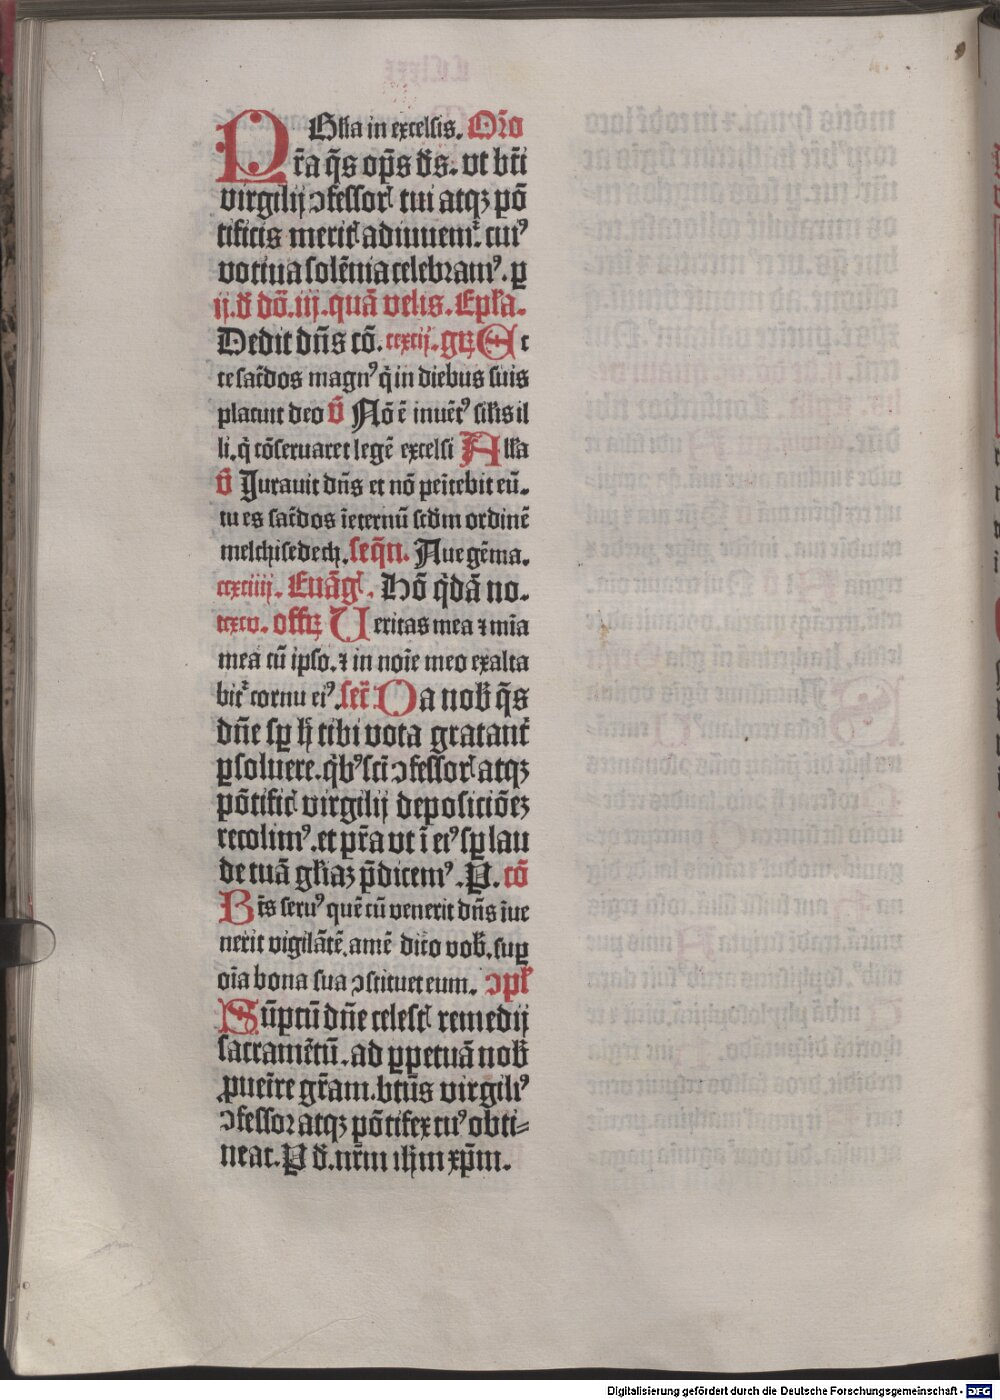 Gl̄ia in excelsis. Or̄o
Pr̄a q̄s op̄s ds̄. vt bt̄i
virgilij ꝯfessorꝭ tui atqꝫ pō
tificis meritꝭ adiuuemꝰ. cuiꝰ
votiua solēnia celebramꝰ. ꝑ
ij. đ dō. iij. quā velis. Epl̄a.
Dedit dn̄s cō. ccxcij. gꝝ Ec
ce sac̄dos magnꝰ q̇ in diebus suis
placuit deo v̄ Nō ē inuētꝰ sil̄is il
li. q̇ cōseruaret legē excelsi All̄a
v̄ Jurauit dn̄s et nō penitebit eū.
tu es sac̄dos īeternū scd̄m ordinē
melchisedech. seq̄n. Aue gēma.
ccxciiij. Euāgꝭ. Hō q̇dā no.
ccxcv. offꝝ Veritas mea ⁊ mīa
mea cū ipso. ⁊ in noīe meo exalta
bit̄ cornu eiꝰ. secr̄ Da nob̄ q̄s
dn̄e sꝑ ħ tibi vota gratant̄
ꝑsoluere. q̇bꝰ sc̄i ꝯfessorꝭ atqꝫ
pōtificꝭ virgilij depositiōeꝫ
recolimꝰ. et pr̄a vt ī eiꝰ sꝑ lau
de tuā gl̄iaꝫ p̄dicemꝰ. P. cō
Bt̄s seruꝰ quē cū venerit dn̄s īue
nerit vigilātē. amē dico vob̄. suꝑ
oīa bona sua ꝯstituet eum. ꝯpꝉ
Sūptū dn̄e celestꝭ remedij
sacramētū. ad ꝑpetuā nob̄
ꝓueīre gr̄am. btūs virgiliꝰ
ꝯfessor atqꝫ pōtifex tuꝰ obti-
neat. P đ. nr̄m ihm̄ xp̄m.
Digitalisierung gefördert durch die Deutsche Forschungsgemeinschaft - DFG